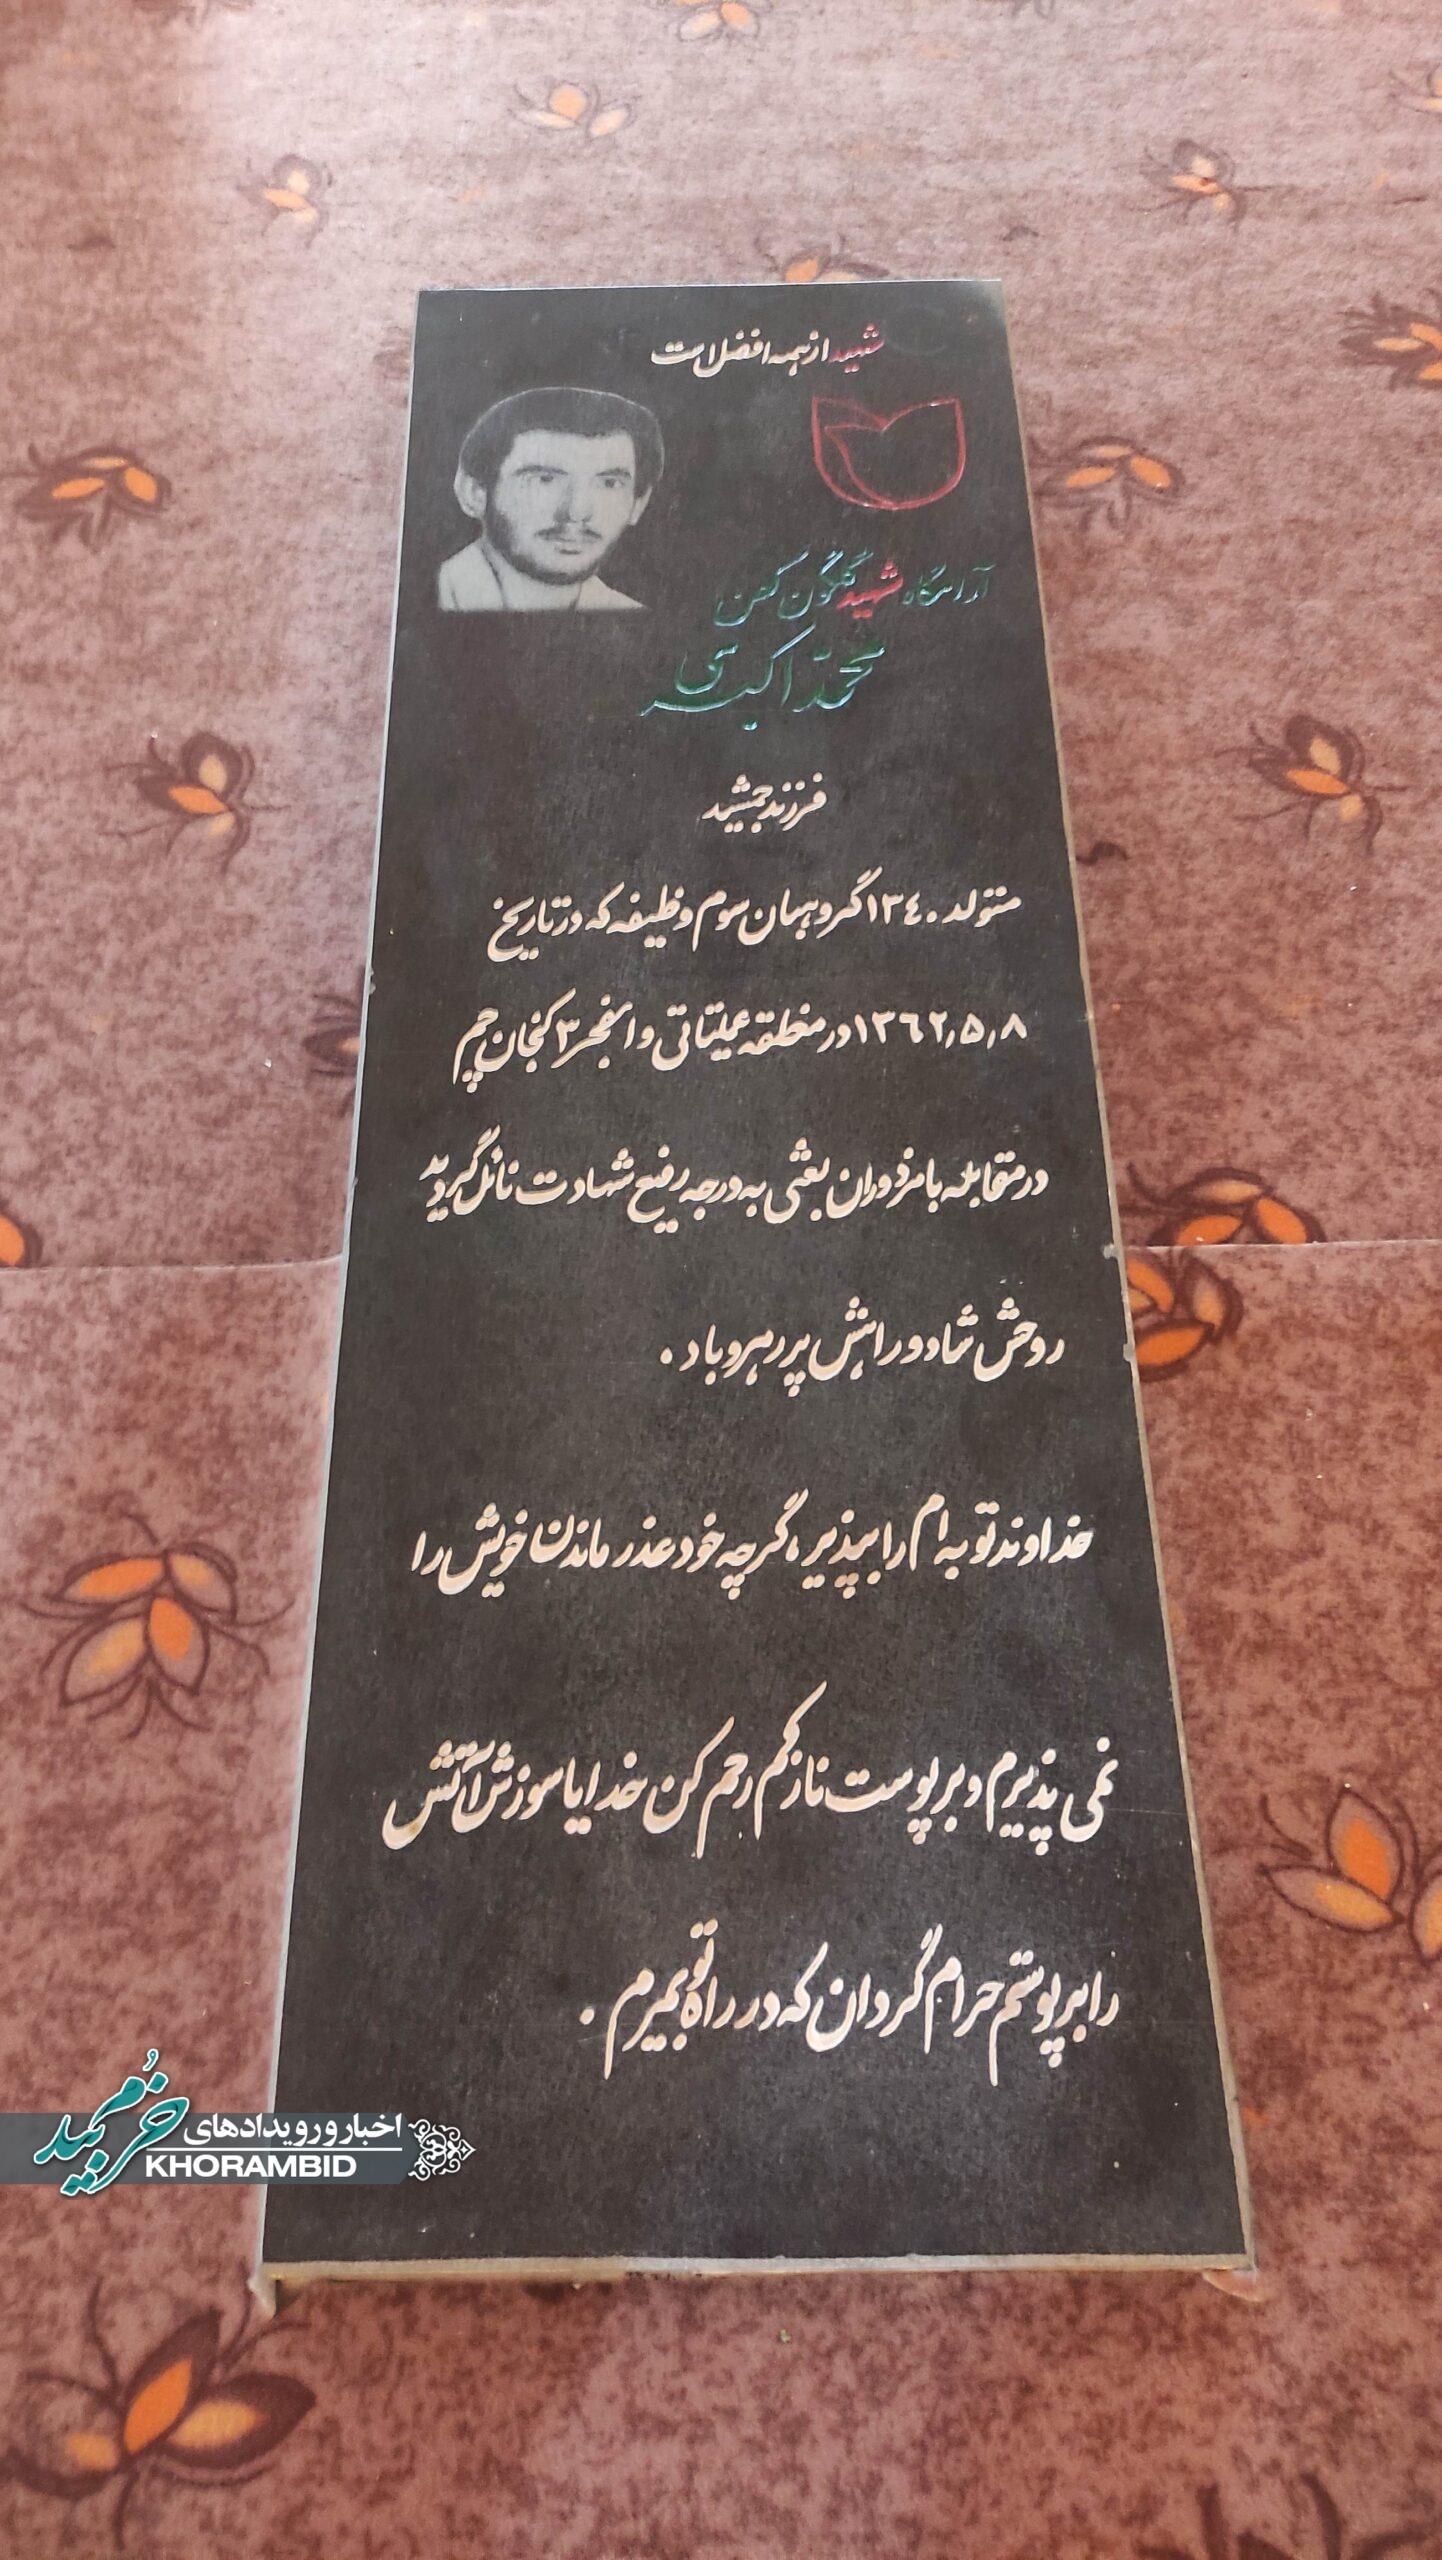 شهید از همه افضل است
آرامگاه شهید گلگون کفن
محمد اکبری
فرزند جمشید
متولد ۱۳۴۰ گروهبان سوم وظیفه که در تاریخ
۱۳۶۲٫۵٫۸ در منطقه عملیاتی والفجر ۳ کنجان چم
در مقابله با مزدوران بعثی به درجه رفیع شهادت نائل گردید
روحش شاد و راهش پر رهرو باد .
خداوند توبه ام را بپذیر ، گرچه خود عذر ماندن خویش را
نمی پذیرم و بر پوست نازکم رحم کن خدایا سوزش آتش
را بر پوستم حرام گردان که در راه تو بمیرم .
اخبار و رویدادهای
خرمبید
KHORAMBID